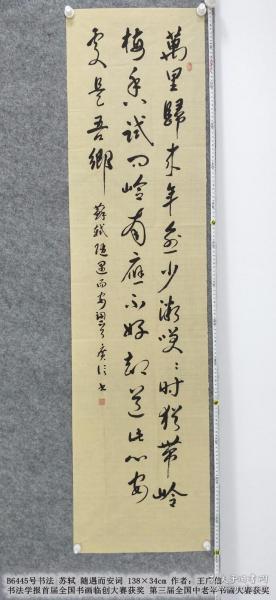 萬里歸来年愈少微笑〻时犹带岭
梅香试问岭南應不好却道此心安
處是吾鄉 蘇軾随遇而安词 廣信书
B6445号书法 苏轼 随遇而安词 138×34cm 作者：王广信
书法学报首届全国书画临创大赛获奖 第三届全国中老年书画大赛获奖